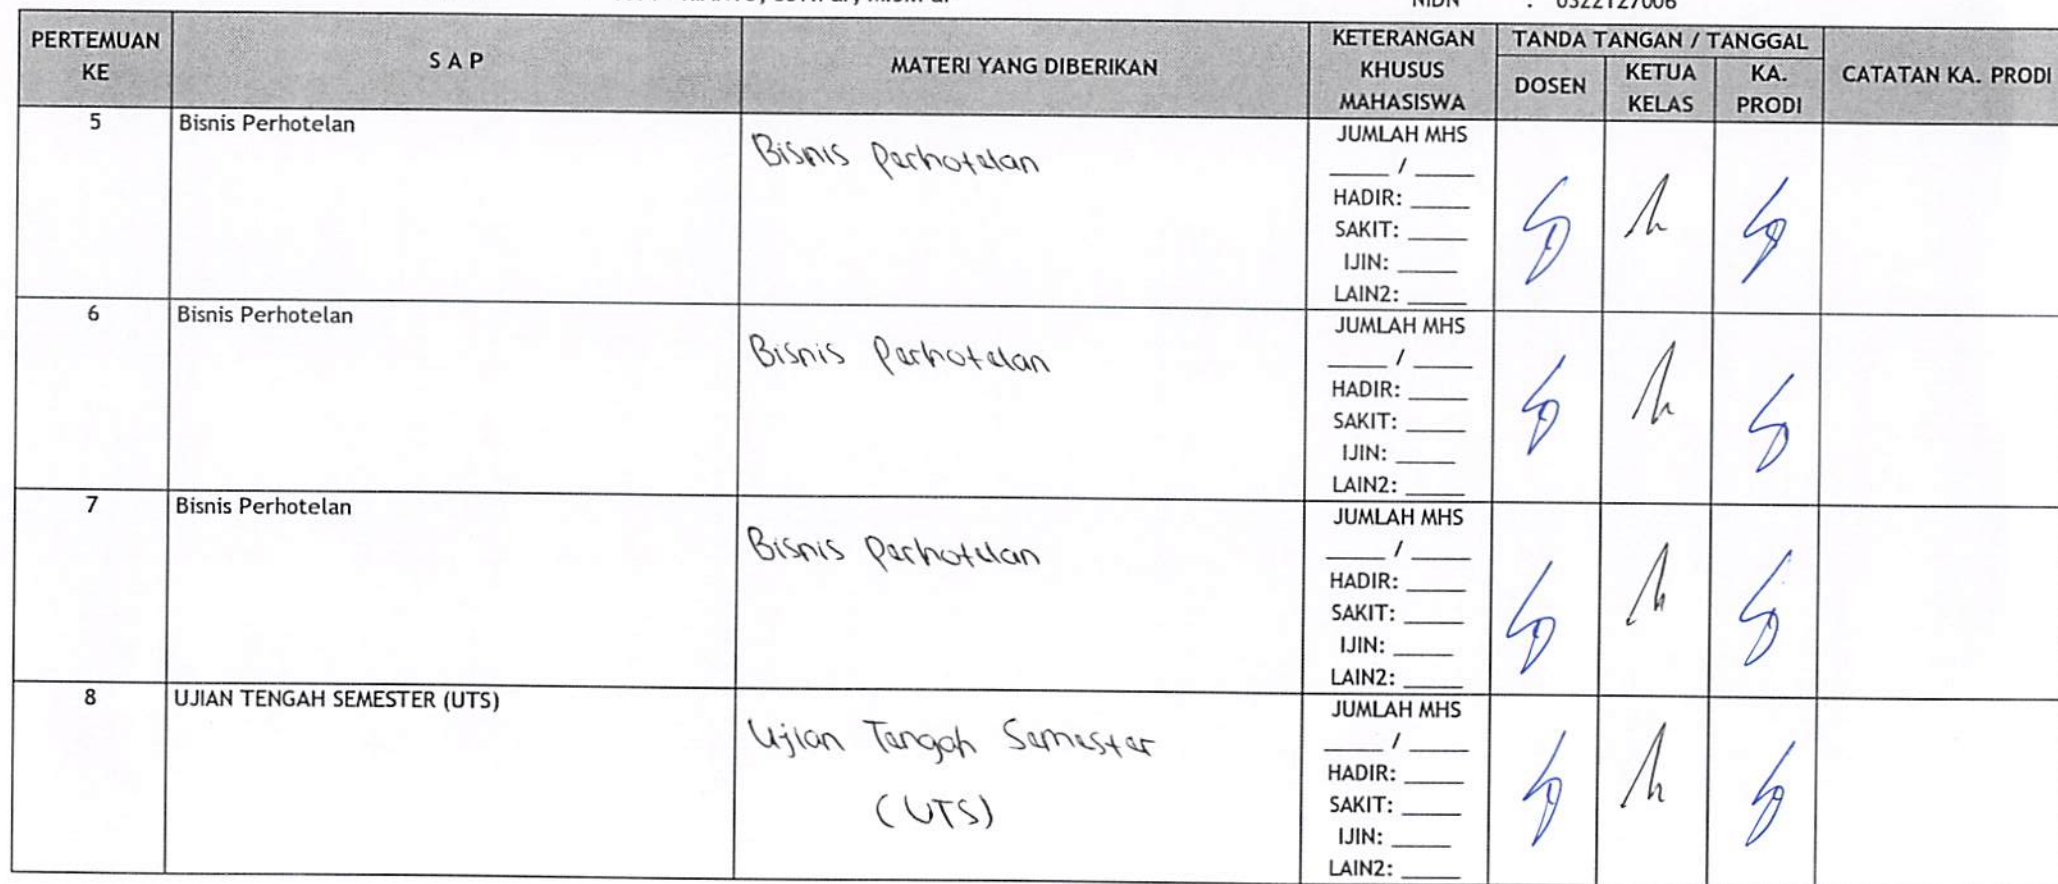 NIDN : 0322127006
PERTEMUAN KE
S A P
MATERI YANG DIBERIKAN
KETERANGAN KHUSUS MAHASISWA
TANDA TANGAN / TANGGAL
DOSEN
KETUA KELAS
KA. PRODI
CATATAN KA. PRODI
5
Bisnis Perhotelan
Bisnis Perhotelan
JUMLAH MHS
____ / ____
HADIR: ____
SAKIT: ____
IJIN: ____
LAIN2: ____
6
Bisnis Perhotelan
Bisnis Perhotelan
JUMLAH MHS
____ / ____
HADIR: ____
SAKIT: ____
IJIN: ____
LAIN2: ____
7
Bisnis Perhotelan
Bisnis Perhotelan
JUMLAH MHS
____ / ____
HADIR: ____
SAKIT: ____
IJIN: ____
LAIN2: ____
8
UJIAN TENGAH SEMESTER (UTS)
Ujian Tengah Semester
(UTS)
JUMLAH MHS
____ / ____
HADIR: ____
SAKIT: ____
IJIN: ____
LAIN2: ____